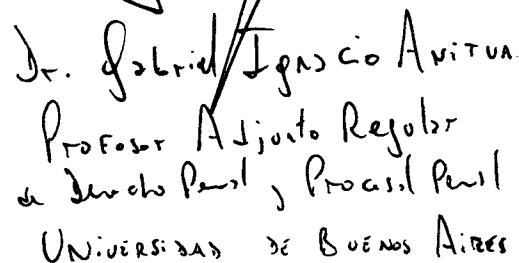 Dr. Gabriel Ignacio Anitua
Profesor Adjunto Regular
de Derecho Penal y Procesal Penal
Universidad de Buenos Aires